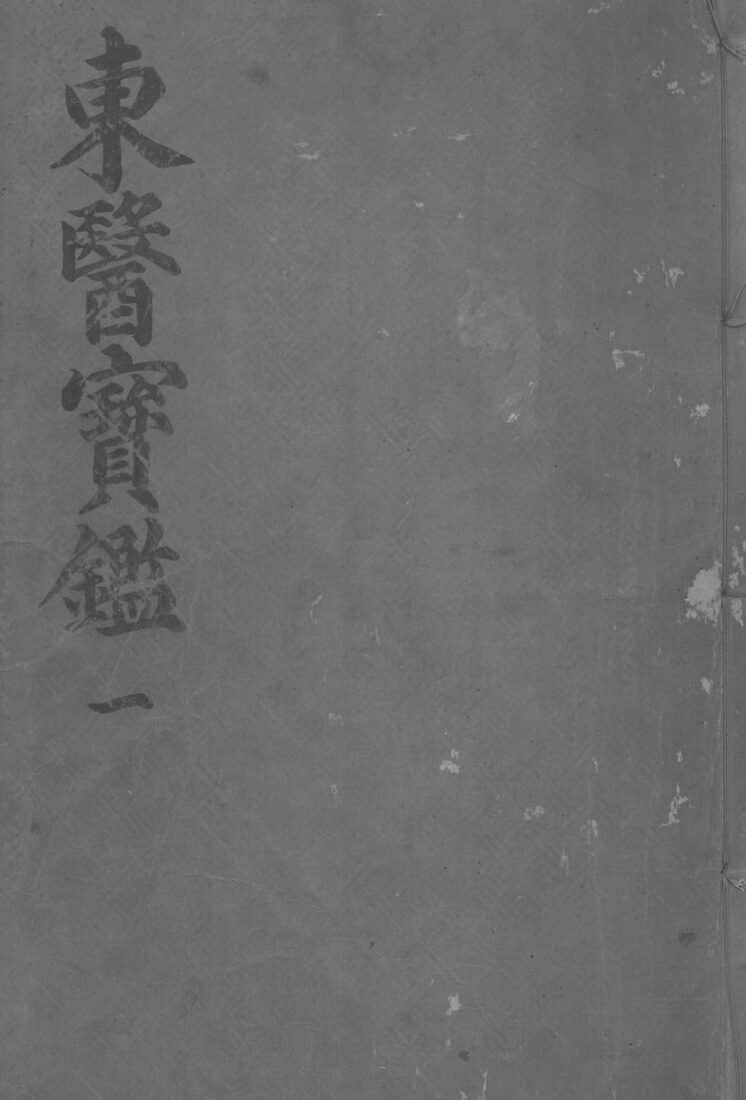 東醫寶鑑 一